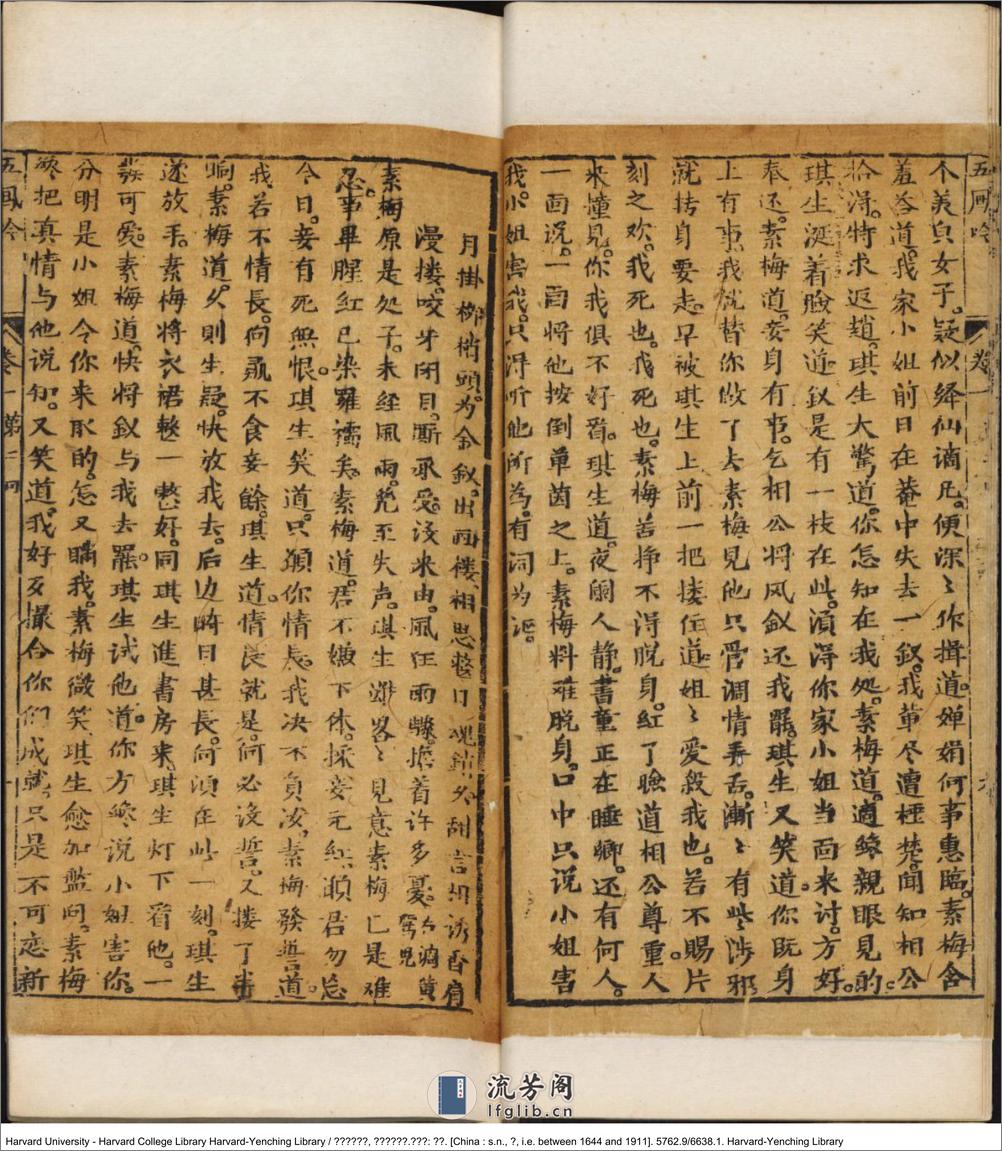 五凤吟 卷一
个美貞女子。疑似绛仙谪凡。便深〻作揖道。婵娟何事惠临。素梅含
羞答道。我家小姐前日在菴中失去一釵。我軰尽遭棰楚。闻知相公
拾淂。特求返趙。琪生大驚道。你怎知在我処。素梅道。適縁親眼見的。
琪生涎着臉笑道。釵是有一枝在此。湏淂你家小姐当面来讨。方好
奉还。素梅道。妾身有事。乞相公将凤釵还我罷。琪生又笑道。你既身
上有事。我就替你做了去。素梅見他只管调情弄舌。漸〻有些涉邪
就抟身要走。早被琪生上前一把搂住道。姐〻爱殺我也。若不賜片
刻之欢。我死也。我死也。素梅苦挣不淂脱身。红了臉道。相公尊重。人
来撞見。你我俱不好看。琪生道。夜阑人静。書童正在睡卿。还有何人。
一面说。一面将他按倒单茵之上。素梅料难脱身。口中只说小姐害
我。小姐害我。只淂听他所为。有词为证。
月掛柳梢頭。为金釵。出西楼。相思整日魂銷久。甜言相诱。香肩
漫搂。咬牙闭目。厮承受。没来由。風狂雨驟。擔着许多憂。
素梅原是处子。未经風雨。免至失声。琪生雖畧〻見意。素梅已是难
忍。事畢。腥红已染羅襦矣。素梅道。君不嫌下体。採妾元红。頋君勿忘
今日。妾有死無恨。琪生笑道。只頋你情長。我决不負汝。素梅發誓道。
我若不情長。向後不食妾餘。琪生道。情長就是。何必没誓。又搂了半
晌。素梅道。久则生疑。快放我去。后边畤日甚長。何湏在此一刻。琪生
遂放手。素梅将衣裙整一整好。同琪生進書房来。琪生灯下看他。一
發可爱。素梅道。快将釵与我去罷。琪生试他道。你方纔说小姐害你。
分明是小姐令你来取的。怎又瞒我。素梅微笑。琪生愈加盤问。素梅
終把真情与他说知。又笑道。我好歹撮合你们成就。只是不可恋新
五凤吟 卷一第二回
流芳阁
lfglib.cn
Harvard University - Harvard College Library Harvard-Yenching Library / ??????, ??????.???: ??. [China : s.n., ?, i.e. between 1644 and 1911]. 5762.9/6638.1. Harvard-Yenching Library